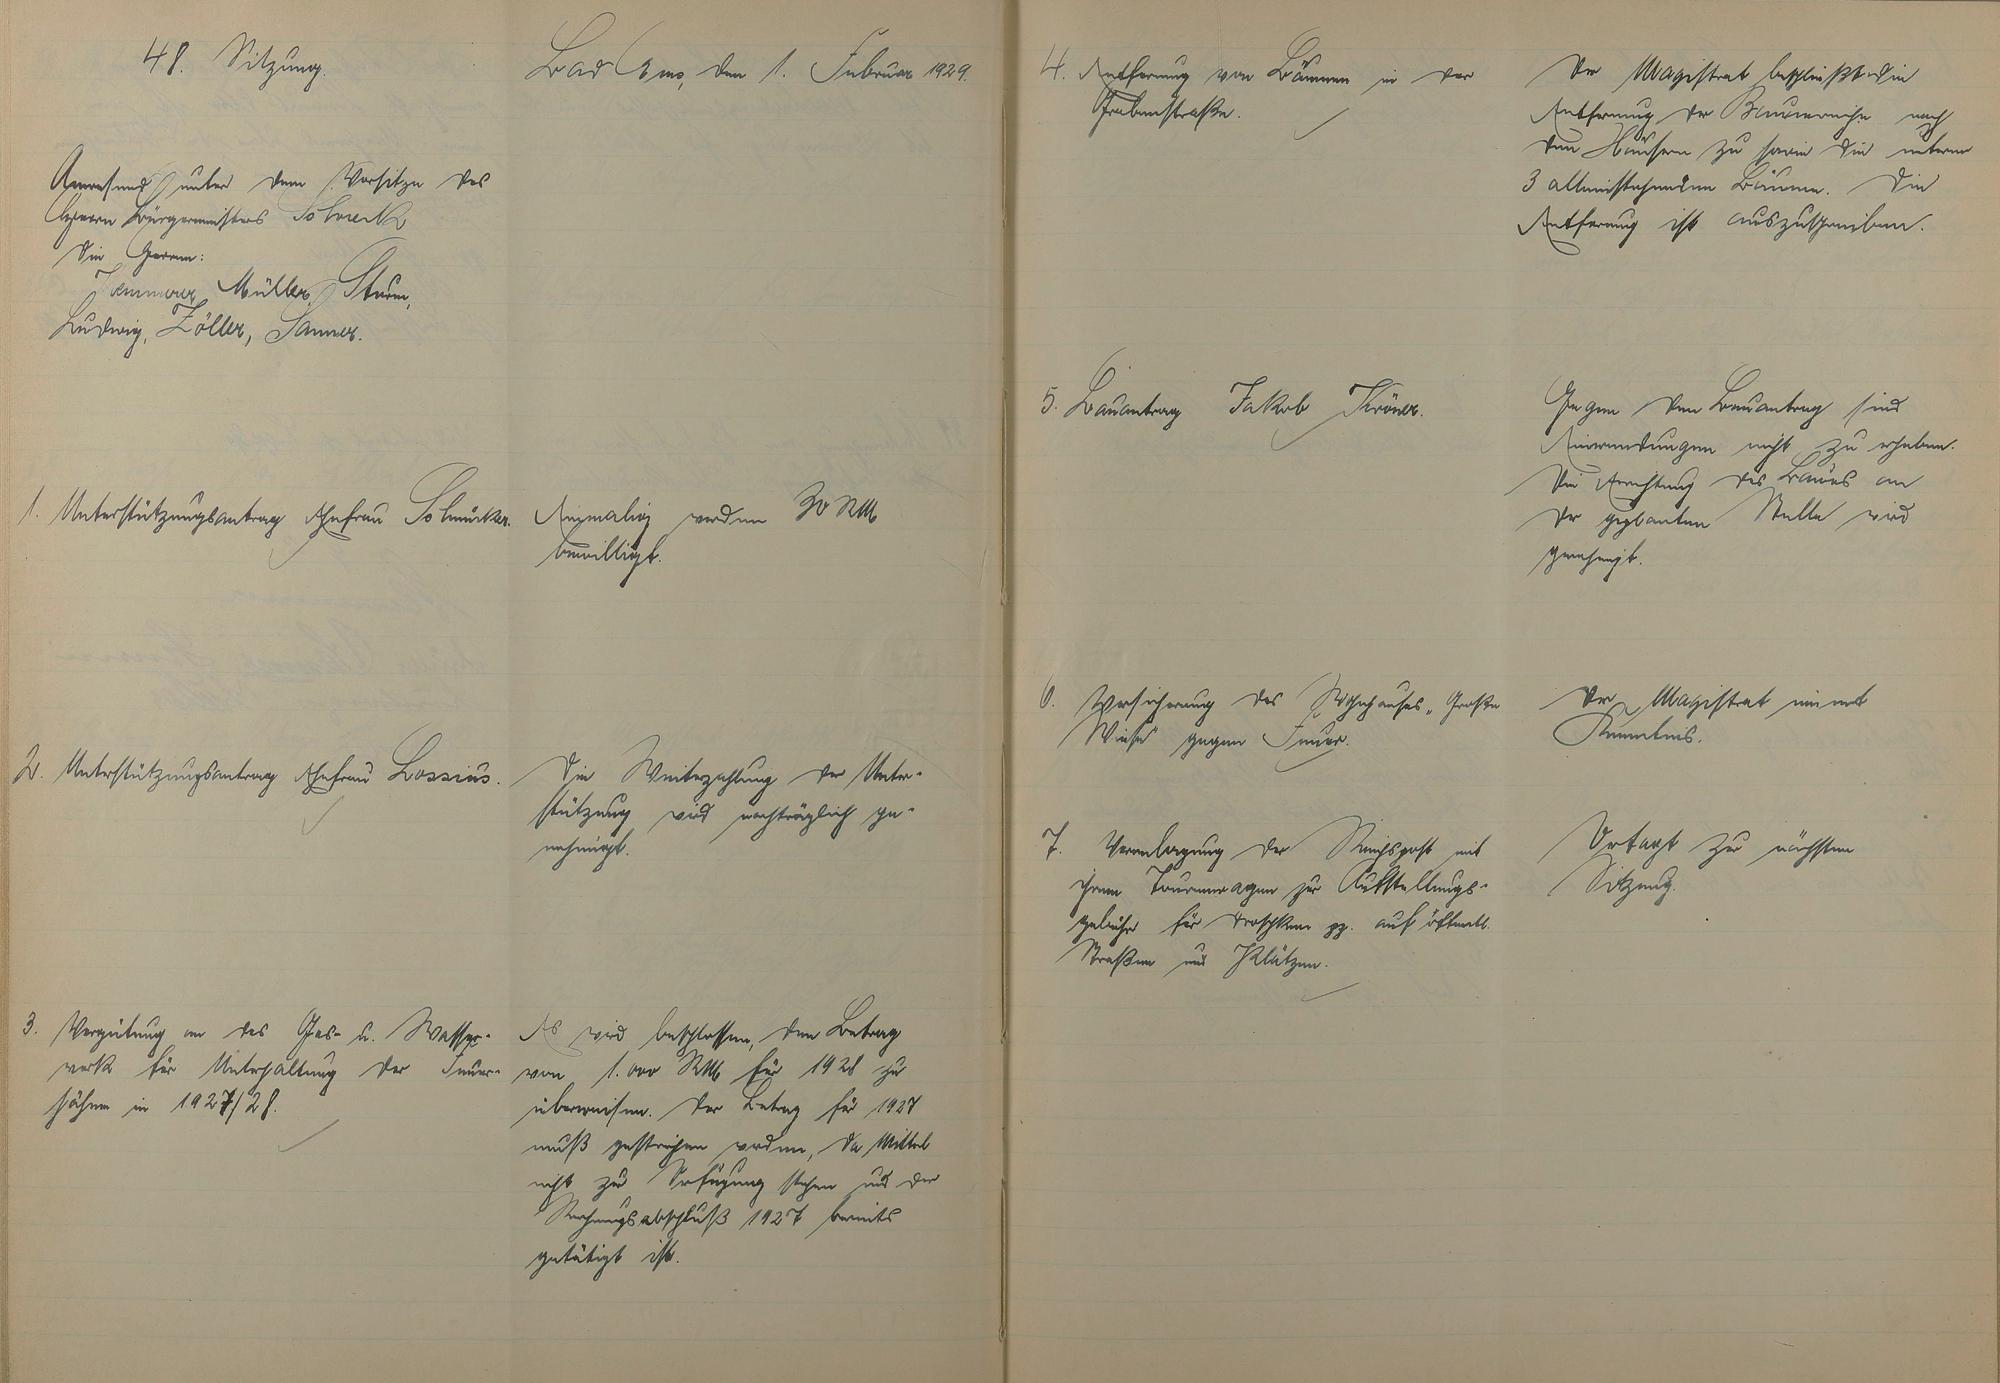 48. Sitzung.
Bad Ems, den 1. Februar 1929.
Anwesend unter dem Vorsitze des
Herrn Bürgermeisters Schreck
die Herren:
Müller, Sturm,
Ludwig, Zöller, Sanner.
1. Unterstützungsantrag Ehefrau Schmücker.
Einmalig werden 30 RM
bewilligt.
2. Unterstützungsantrag Ehefrau Lossius.
Die Weiterzahlung der Unter-
stützung wird nachträglich ge-
nehmigt.
3. Vergütung an das Gas- u. Wasser-
werk für Unterhaltung der Feuer-
hähne in 1927/28.
Es wird beschlossen, den Betrag
von 1.000 RM für 1928 zu
überweisen. Der Betrag für 1927
muß gestrichen werden, da Mittel
nicht zur Verfügung stehen und der
Rechnungsabschluß 1927 bereits
getätigt ist.
4. Entfernung von Bäumen in der
Grabenstraße.
Der Magistrat beschließt die
Entfernung der Baumreihe nach
den Häusern zu sowie die unteren
3 alleinstehenden Bäume. Die
Entfernung ist auszuschreiben.
5. Bauantrag Jakob Kröner.
Gegen den Bauantrag sind
Einwendungen nicht zu erheben.
Die Errichtung des Baues an
der geplanten Stelle wird
genehmigt.
6. Versicherung des Wohnhauses „Große
Wiese" gegen Feuer.
Der Magistrat nimmt
Kenntnis.
7. Veranlagung der Reichspost mit
ihrem Tourenwagen zur Aufstellungs-
gebühr für Droschken pp. auf öffentl.
Straßen und Plätzen.
Vertagt zur nächsten
Sitzung.